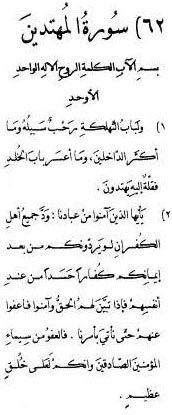 ٦٢) سورة المهتدين
بسم الآب الكلمة الروح الاله الواحد
الأوحد
١) ولباب التهلكة رحب سبيله وما
أكثر الداخلين، وما أعسر باب الخلد
فقلة إليه يهتدون.
٢) يأيها الذين آمنوا من عبادنا: ود جميع أهل
الكفران لو يردونكم من بعد
إيمانكم كفارا حسدا من عند
أنفسهم فإذا تبين لهم الحق وآمنوا فاعفوا
عنهم حتى تأتي بأمرنا. فالعفو من سيماء
المؤمنين الصادقين وانكم لعلى خلق
عظيم.